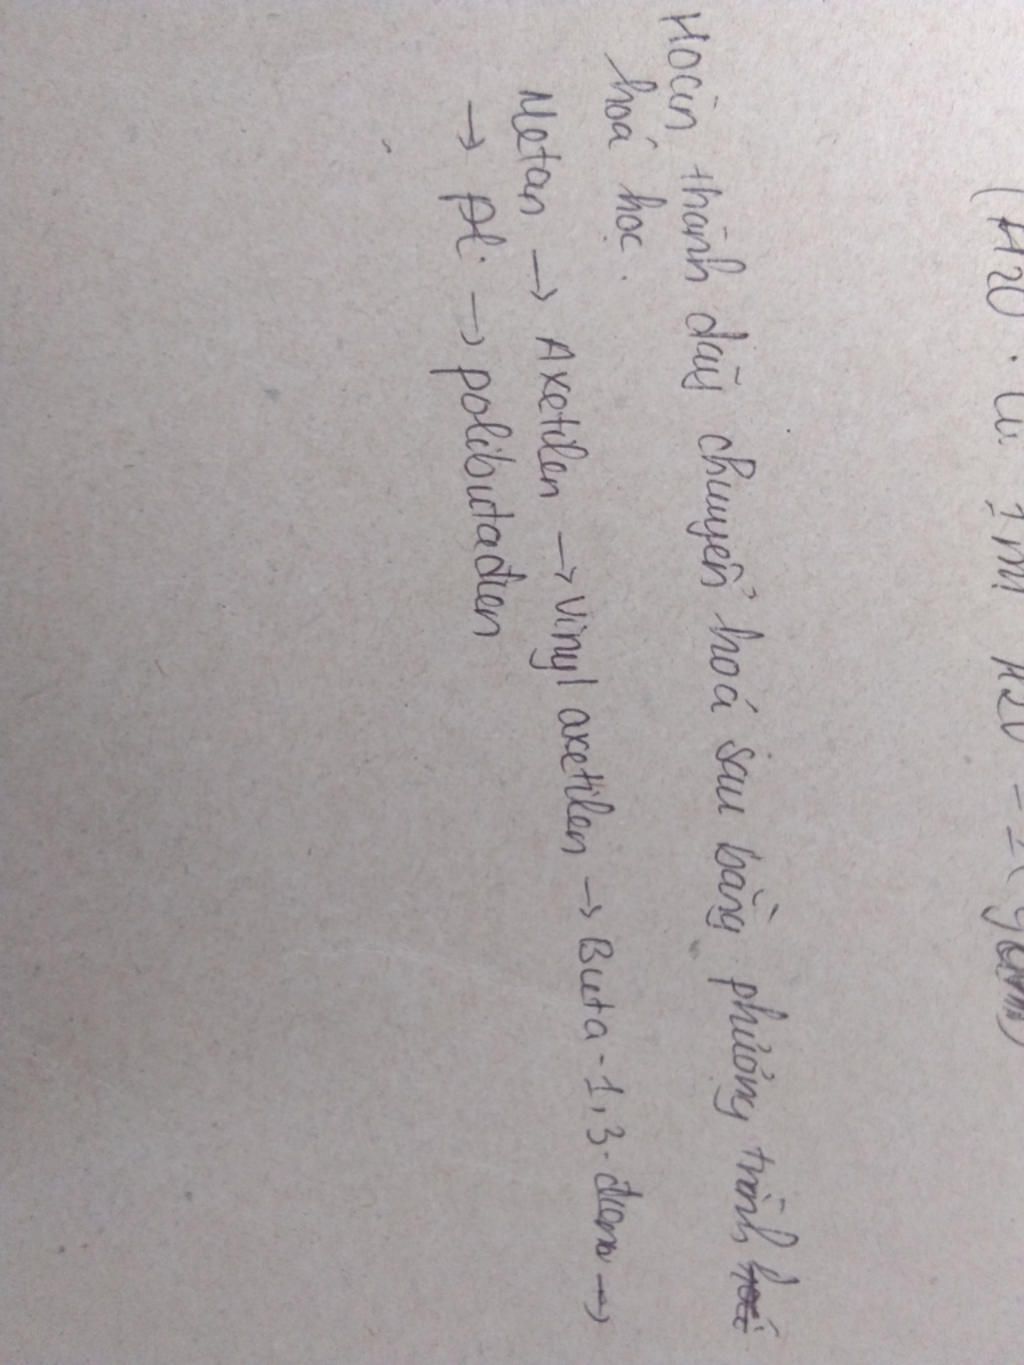 (H2O
Hoàn thành dãy chuyển hoá sau bằng phương trình
hoá học.
Metan → Axetilen → Vinyl axetilen → Buta-1,3-đien →
→ polibutađien